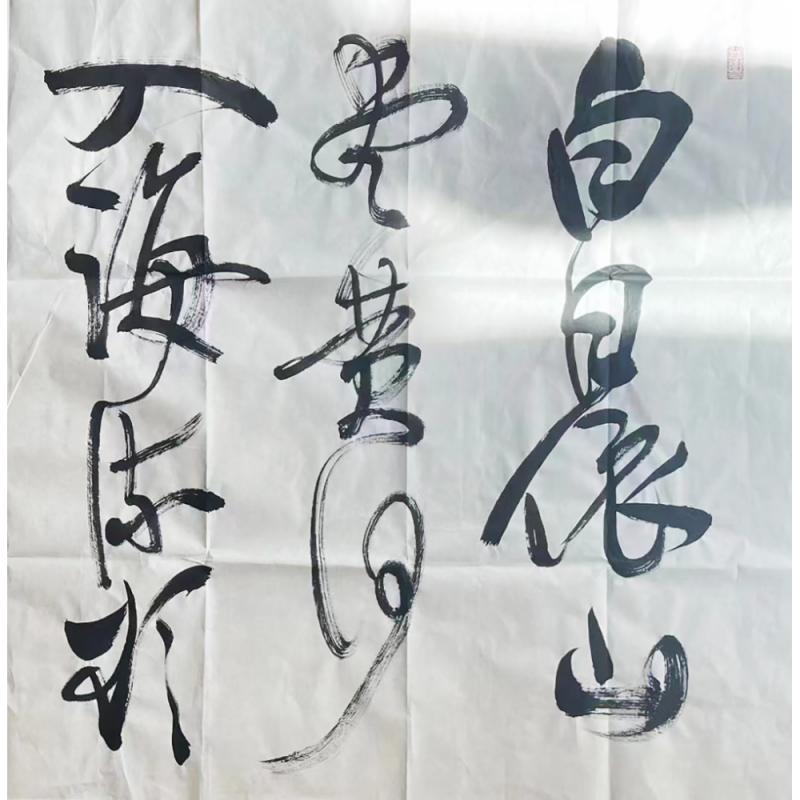 白日依山
尽黄河
入海流